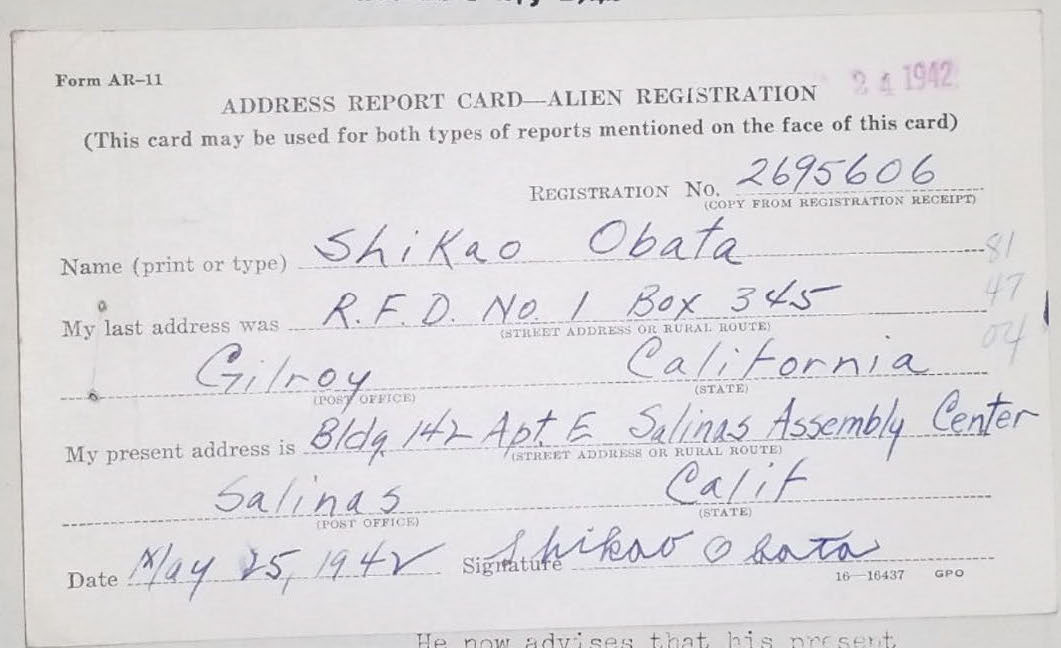 Form AR–11
24 1942
ADDRESS REPORT CARD—ALIEN REGISTRATION
(This card may be used for both types of reports mentioned on the face of this card)
REGISTRATION No. 2695606
(COPY FROM REGISTRATION RECEIPT)
Name (print or type) Shikao Obata
81
My last address was R.F.D. No. 1 Box 345
47
(STREET ADDRESS OR RURAL ROUTE)
04
Gilroy California
(POST OFFICE) (STATE)
My present address is Bldg. 142 Apt. E Salinas Assembly Center
(STREET ADDRESS OR RURAL ROUTE)
Salinas Calif
(POST OFFICE) (STATE)
Date May 25, 1942 Signature Shikao Obata
16—16437 GPO
He now advises that his present